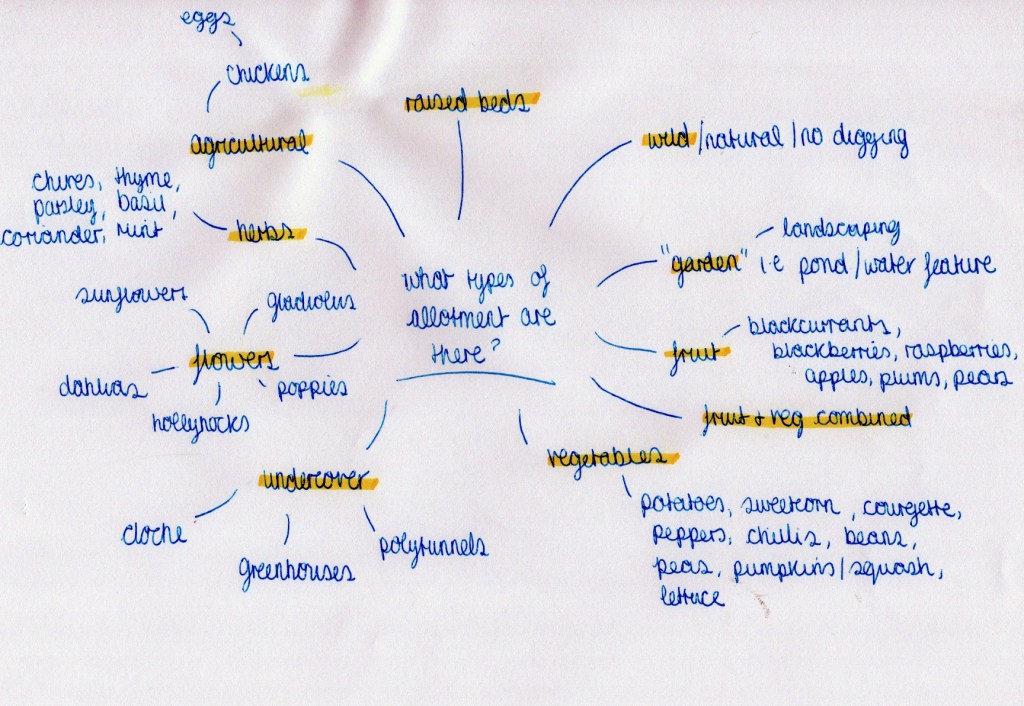 eggs
chickens
agricultural
raised beds
wild/natural/no digging
chives, thyme,
parsley, basil,
coriander, mint
herbs
"garden"
landscaping
i.e pond/water feature
what types of
allotment are
there?
sunflowers
gladiolus
flowers
dahlias
poppies
hollyhocks
fruit
blackcurrants,
blackberries, raspberries,
apples, plums, pears
fruit + veg combined
vegetables
potatoes, sweetcorn, courgette,
peppers, chillis, beans,
peas, pumpkins/squash,
lettuce
undercover
cloche
greenhouses
polytunnels